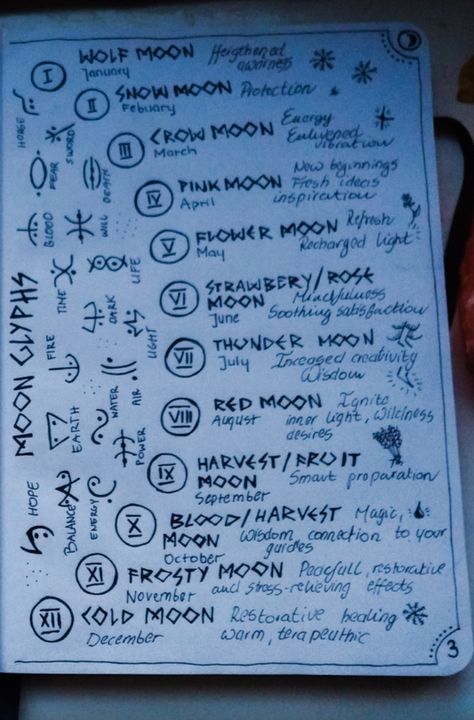 I WOLF MOON Heigthened
January awarness
II SNOW MOON Protection
Febuary
III CROW MOON Energy
March Enlivened
vibration
IV PINK MOON New beginnings
April Fresh ideas
inspiration
V FLOWER MOON Refresh
May Recharged light
VI STRAWBERY/ROSE
MOON Mindfulness
June Soothing satisfaction
VII THUNDER MOON
July Inceased creativity
Wisdom
VIII RED MOON Ignite
August inner light, Wildness
desires
IX HARVEST/FRUIT
MOON Smart preparation
September
X BLOOD/HARVEST Magic,
MOON Wisdom connection to your
October guides
XI FROSTY MOON Peacfull, restorative
November and stress-relieving effects
XII COLD MOON Restorative healing
December warm, terapeuthic
3
MOON GLYPHS
HORSE
SWORD
FEAR
DEATH
BLOOD
WILL
TIME
LIFE
DARK
FIRE
LIGHT
EARTH
WATER
AIR
POWER
HOPE
BALANCE
ENERGY